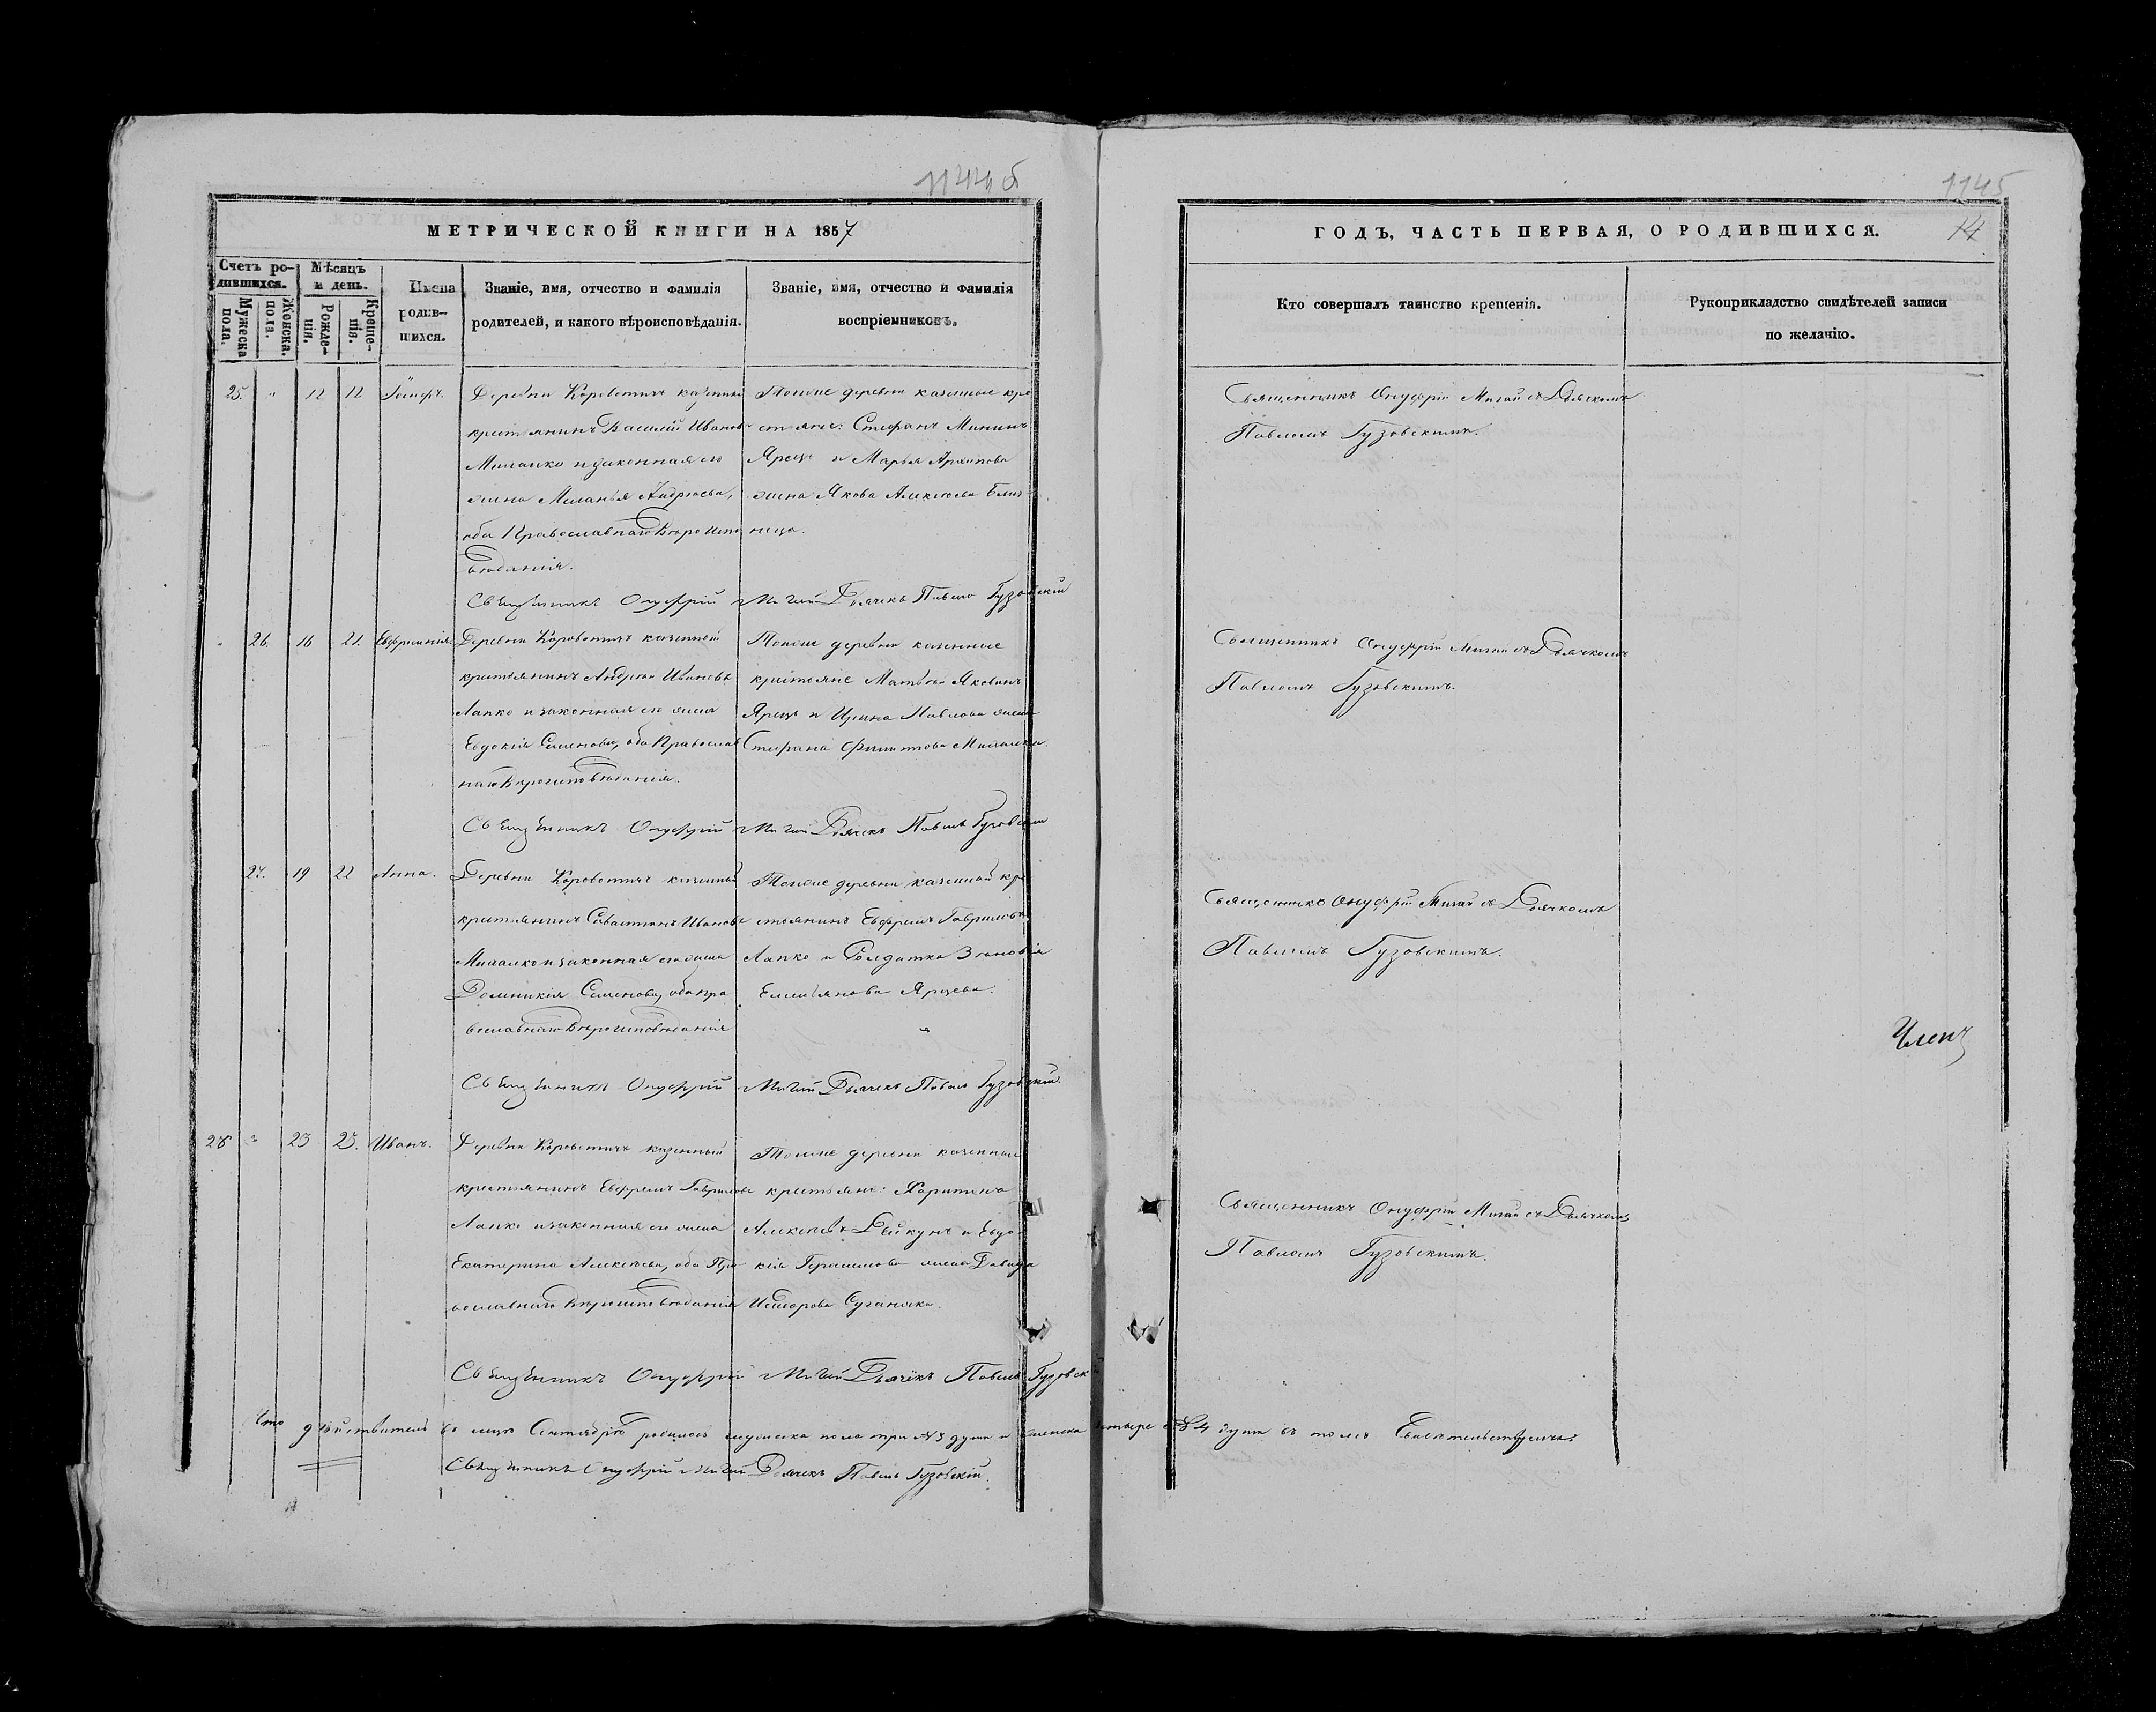 1144 об
МЕТРИЧЕСКОЙ КНИГИ НА 1857
Счетъ родившихся.
Мужеска пола.
Женска. пола.
Мѣсяцъ и день.
Рожденія.
Крещенія.
Имена родившихся.
Званіе, имя, отчество и фамилія
родителей, и какого вѣроисповѣданія.
Званіе, имя, отчество и фамилія
воспріемниковъ.
25. " 12 12
Деревни казенный
крестьянинъ Василій Ивановъ
и законная его
жена Меланья Андреева,
оба Православнаго Вѣроиспо
вѣданія.
Тойже деревни казенные кре
стьяне: Стефанъ Мининъ
Ярецъ и Марья Архипова
жена Якова Алексѣева
Священникъ Онуфрій Мигай Дьячекъ Павелъ Гузовскій
" 26. 16 21. Евфросинія
Деревни казенный
крестьянинъ Андрей Ивановъ
Лапко и законная его жена
Евдокія Семенова, оба Православ
наго Вѣроисповѣданія.
Тойже деревни казенные
крестьяне Матвѣй Яковлевъ
Ярецъ и Ирина Павлова жена
Стефана Филиппова
Священникъ Онуфрій Мигай Дьячекъ Павелъ Гузовскій
27. 19 22 Анна.
Деревни казенный
крестьянинъ Севастіянъ Ивановъ
и законная его жена
Домникія Семенова, оба Пра
вославнаго Вѣроисповѣданія
Тойже деревни казенный кре
стьянинъ Евфремъ Гавриловъ
Лапко и Солдатка Зѣновія
Емельянова Ярцева.
Священникъ Онуфрій Мигай Дьячекъ Павелъ Гузовскій.
28 " 23 23. Иванъ.
Деревни казенный
крестьянинъ Евфремъ Гавриловъ
Лапко и законная его жена
Екатерина Алексѣева, оба Пра
вославнаго Вѣроисповѣданія
Тойже деревни казенные
крестьяне: Харитонъ
Алексѣевъ Дейкунъ и Евдо
кія Герасимова жена Давида
Священникъ Онуфрій Мигай Дьячекъ Павелъ Гузовск
Что дѣйствительно въ мцѣ Сентябрѣ родилось мужеска пола три № 3 души и женска четыре № 4 души въ томъ Свидѣтельствуемъ:
Священникъ Онуфрій Мигай Дьячекъ Павелъ Гузовскій.
1145
14
ГОДЪ, ЧАСТЬ ПЕРВАЯ, О РОДИВШИХСЯ.
Кто совершалъ таинство крещенія.
Рукоприкладство свидѣтелей записи
по желанію.
Священникъ Онуфрій Мигай съ Дьячкомъ
Павломъ Гузовскимъ.
Священникъ Онуфрій Мигай съ Дьячкомъ
Павломъ Гузовскимъ.
Священникъ Онуфрій Мигай съ Дьячкомъ
Павломъ Гузовскимъ.
Членъ
Священникъ Онуфрій Мигай съ Дьячкомъ
Павломъ Гузовскимъ.